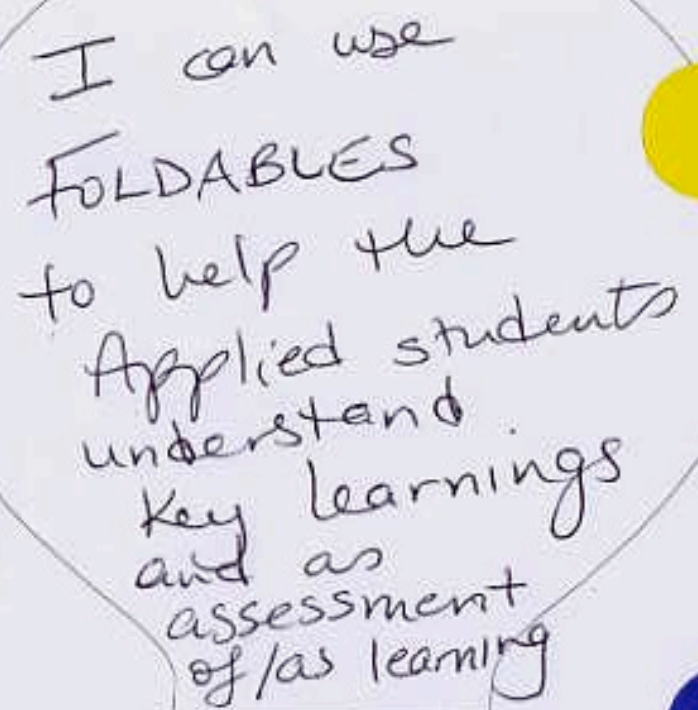 I can use
FOLDABLES
to help the
Applied students
understand
key learnings
and as
assessment
of/as learning